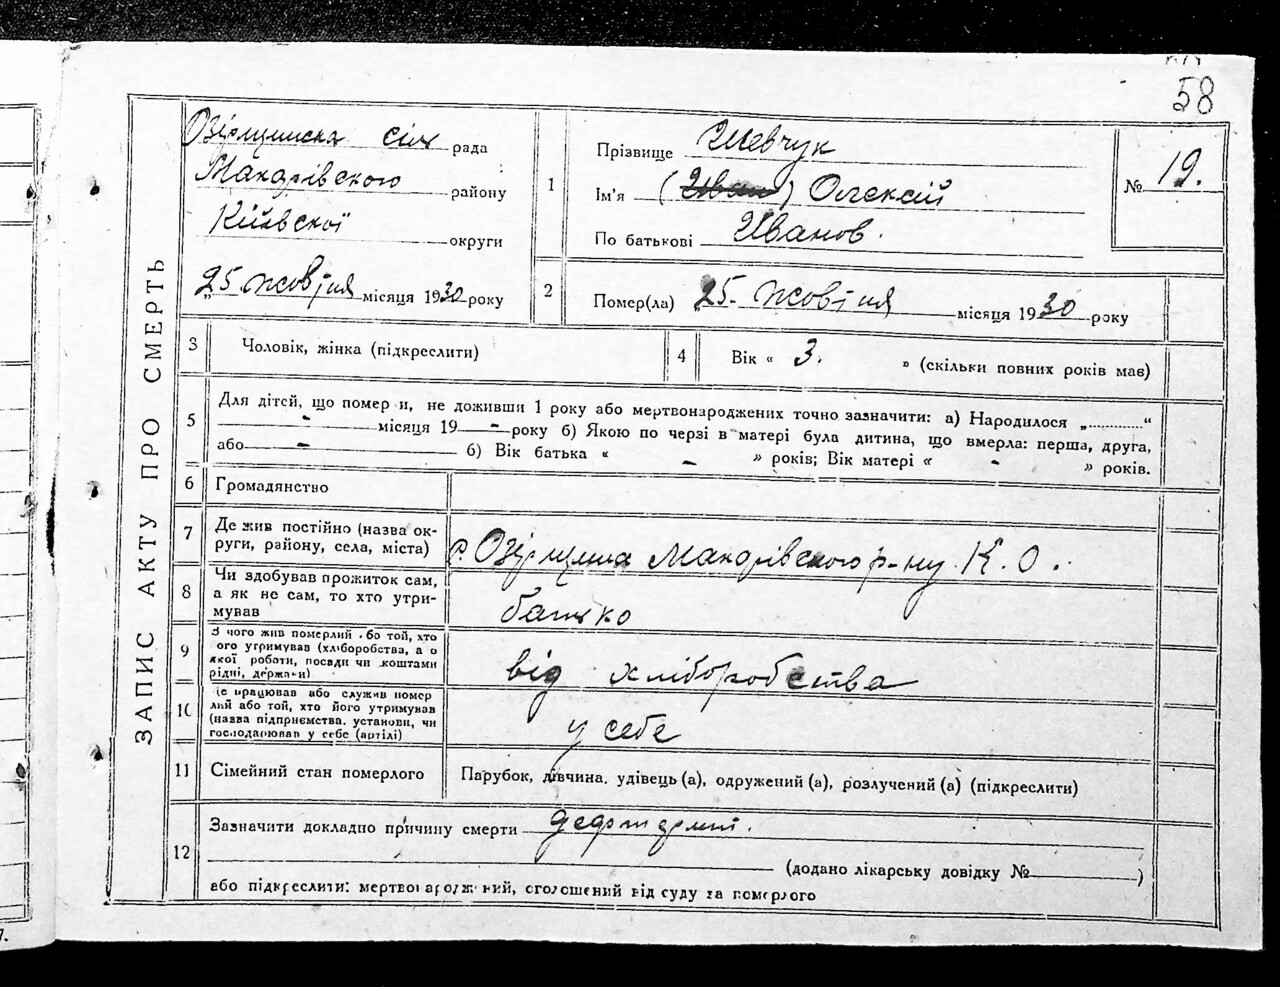 58
ЗАПИС АКТУ ПРО СМЕРТЬ
Озірщинська сіль рада
Макарівського району
Київської округи
„25 жовтня місяця 1930 року
1
Прізвище Шевчук
Ім'я (Иван) Олексій
По батькові Иванов.
№ 19.
2
Помер(ла) „25. жовтня місяця 1930 року
3 Чоловік, жінка (підкреслити)
4 Вік « 3. » (скільки повних років має)
5 Для дітей, що помер и, не доживши 1 року або мертвонароджених точно зазначити: а) Народилося „............“
- місяця 19 - року б) Якою по черзі в матері була дитина, що вмерла: перша, друга,
або - б) Вік батька « - » років; Вік матері « - » років.
6 Громадянство
7 Де жив постійно (назва ок-
руги, району, села, міста)
с. Озірщина Макарівського р-ну К. О.
8 Чи здобував прожиток сам,
а як не сам, то хто утри-
мував
батько
9 З чого жив померлий бо той, хто
ого утримував (хліборобства, а о
якої роботи, посади чи коштами
рідні, держави)
від хліборобства
10 е працював або служив помер
лий або той, хто його утримував
(назва підприємства. установи, чи
господарював у себе (артілі)
у себе
11 Сімейний стан померлого
Парубок, дівчина. удівець (а), одружений (а), розлучений (а) (підкреслити)
12 Зазначити докладно причину смерти
(додано лікарську довідку № )
або підкреслити: мертвонароджений, оголошений від суду за померлого
7.